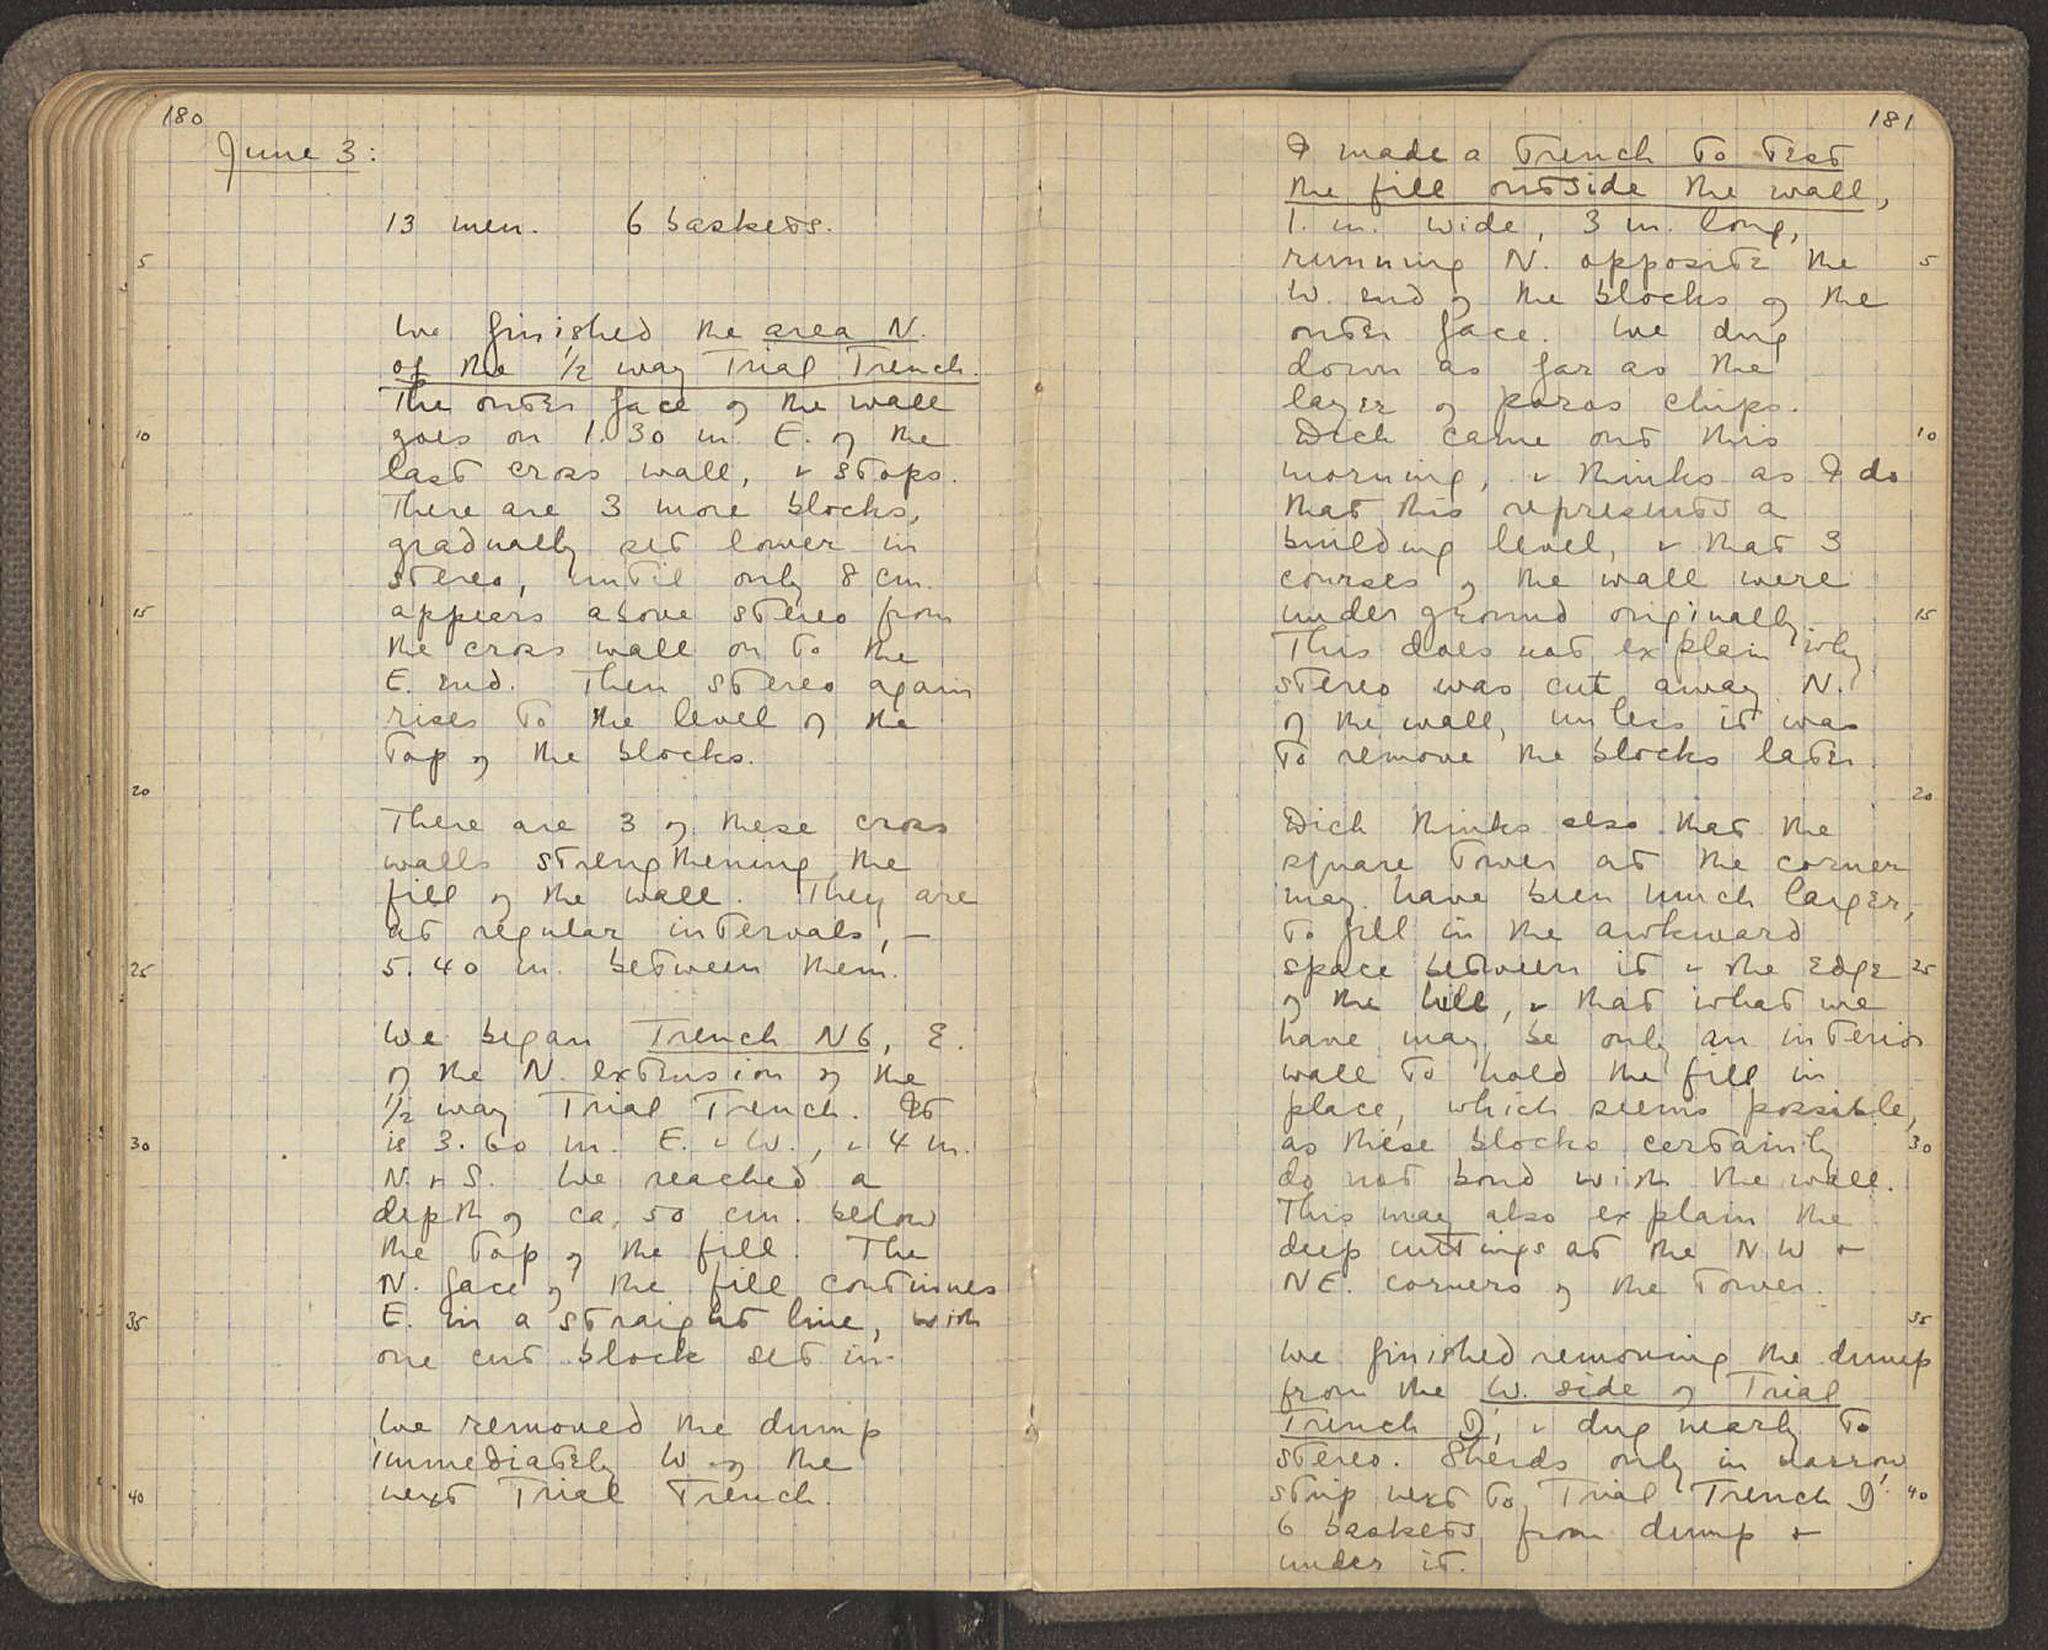 180
June 3:
13 men. 6 baskets.
5
We finished the area N.
of the 1/2 way Trial Trench.
The outer face of the wall
10 goes on 1.30 m. E. of the
last cross wall, & stops.
There are 3 more blocks,
gradually set lower in
stereo, until only 8 cm.
15 appears above stereo from
the cross wall on to the
E. end. Then stereo again
rises to the level of the
top of the blocks.
20
There are 3 of these cross
walls strengthening the
fill of the wall. They are
at regular intervals, –
25 5.40 m. between them.
We began Trench N6, E.
of the N. extension of the
1/2 way Trial Trench. It
30 is 3.60 m. E. & W., & 4 m.
N. & S. We reached a
depth of ca. 50 cm. below
the top of the fill. The
N. face of the fill continues
35 E. in a straight line, with
one cut block set in.
We removed the dump
immediately W. of the
40 next Trial Trench.
181
I made a Trench to Test
the fill outside the wall,
1. m. wide, 3 m. long,
running N. opposite the 5
W. end of the blocks of the
outer face. We dug
down as far as the
layer of poros chips.
Dick came out this 10
morning, & thinks as I do
that this represents a
building level, & that 3
courses of the wall were
under ground originally. 15
This does not explain why
stereo was cut away N.
of the wall, unless it was
to remove the blocks later.
20
Dick thinks also that the
square tower at the corner
may have been much larger,
to fill in the awkward
space between it & the edge 25
of the hill, & that what we
have may be only an interior
wall to hold the fill in
place, which seems possible,
as these blocks certainly 30
do not bond with the wall.
This may also explain the
deep cuttings at the NW &
NE. corners of the tower.
35
We finished removing the dump
from the W. side of Trial
Trench D', & dug nearly to
stereo. Sherds only in narrow
strip next to Trial Trench D'. 40
6 baskets from dump &
under it.